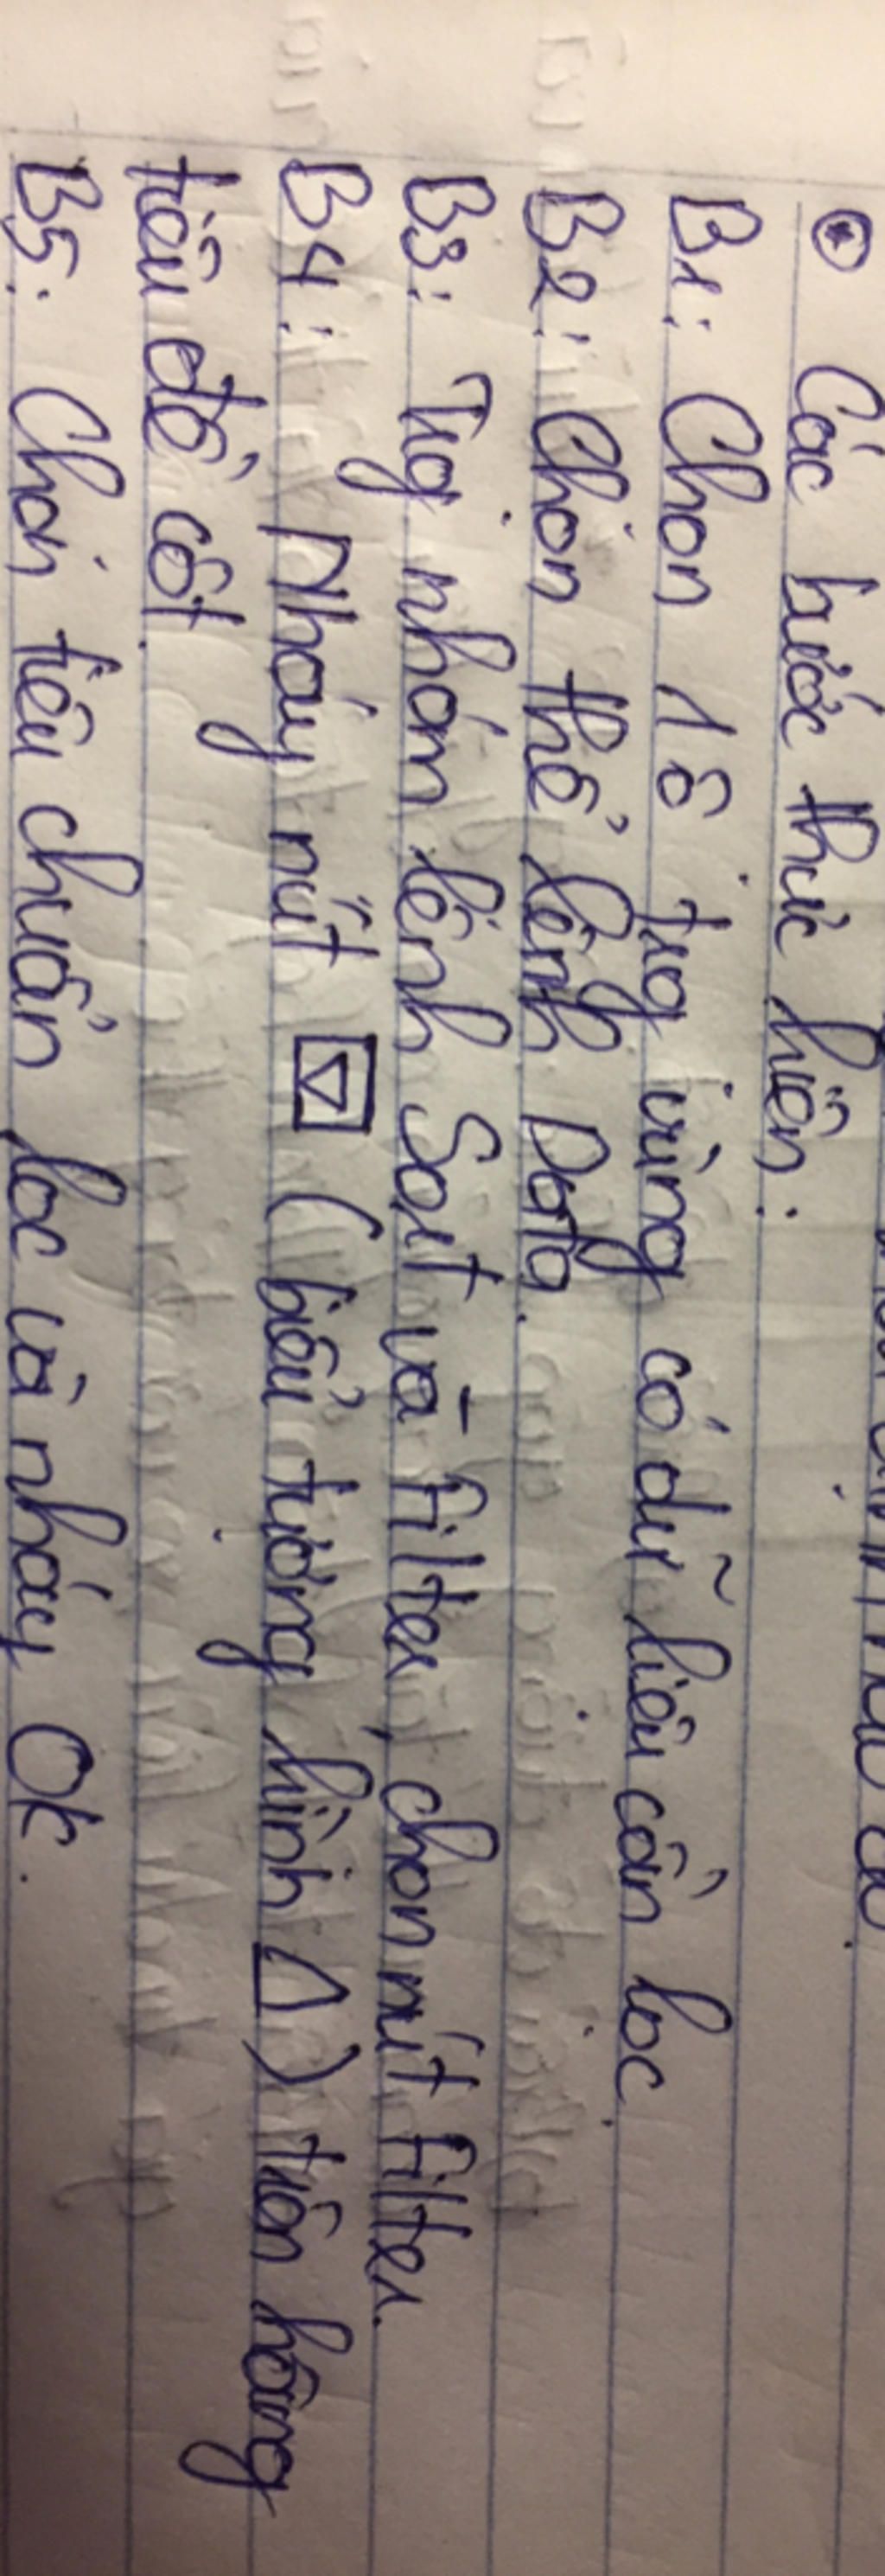 ⊛ Các bước thực hiện:
B1: Chọn 1 ô trg vùng có dữ liệu cần lọc.
B2: Chọn thẻ lệnh Data.
B3: Trg nhóm lệnh Sort và Filter, chọn nút Filter.
B4: Nháy nút ▽ (biểu tượng hình △) trên hàng
tiêu đề cột.
B5: Chọn tiêu chuẩn lọc và nháy Ok.